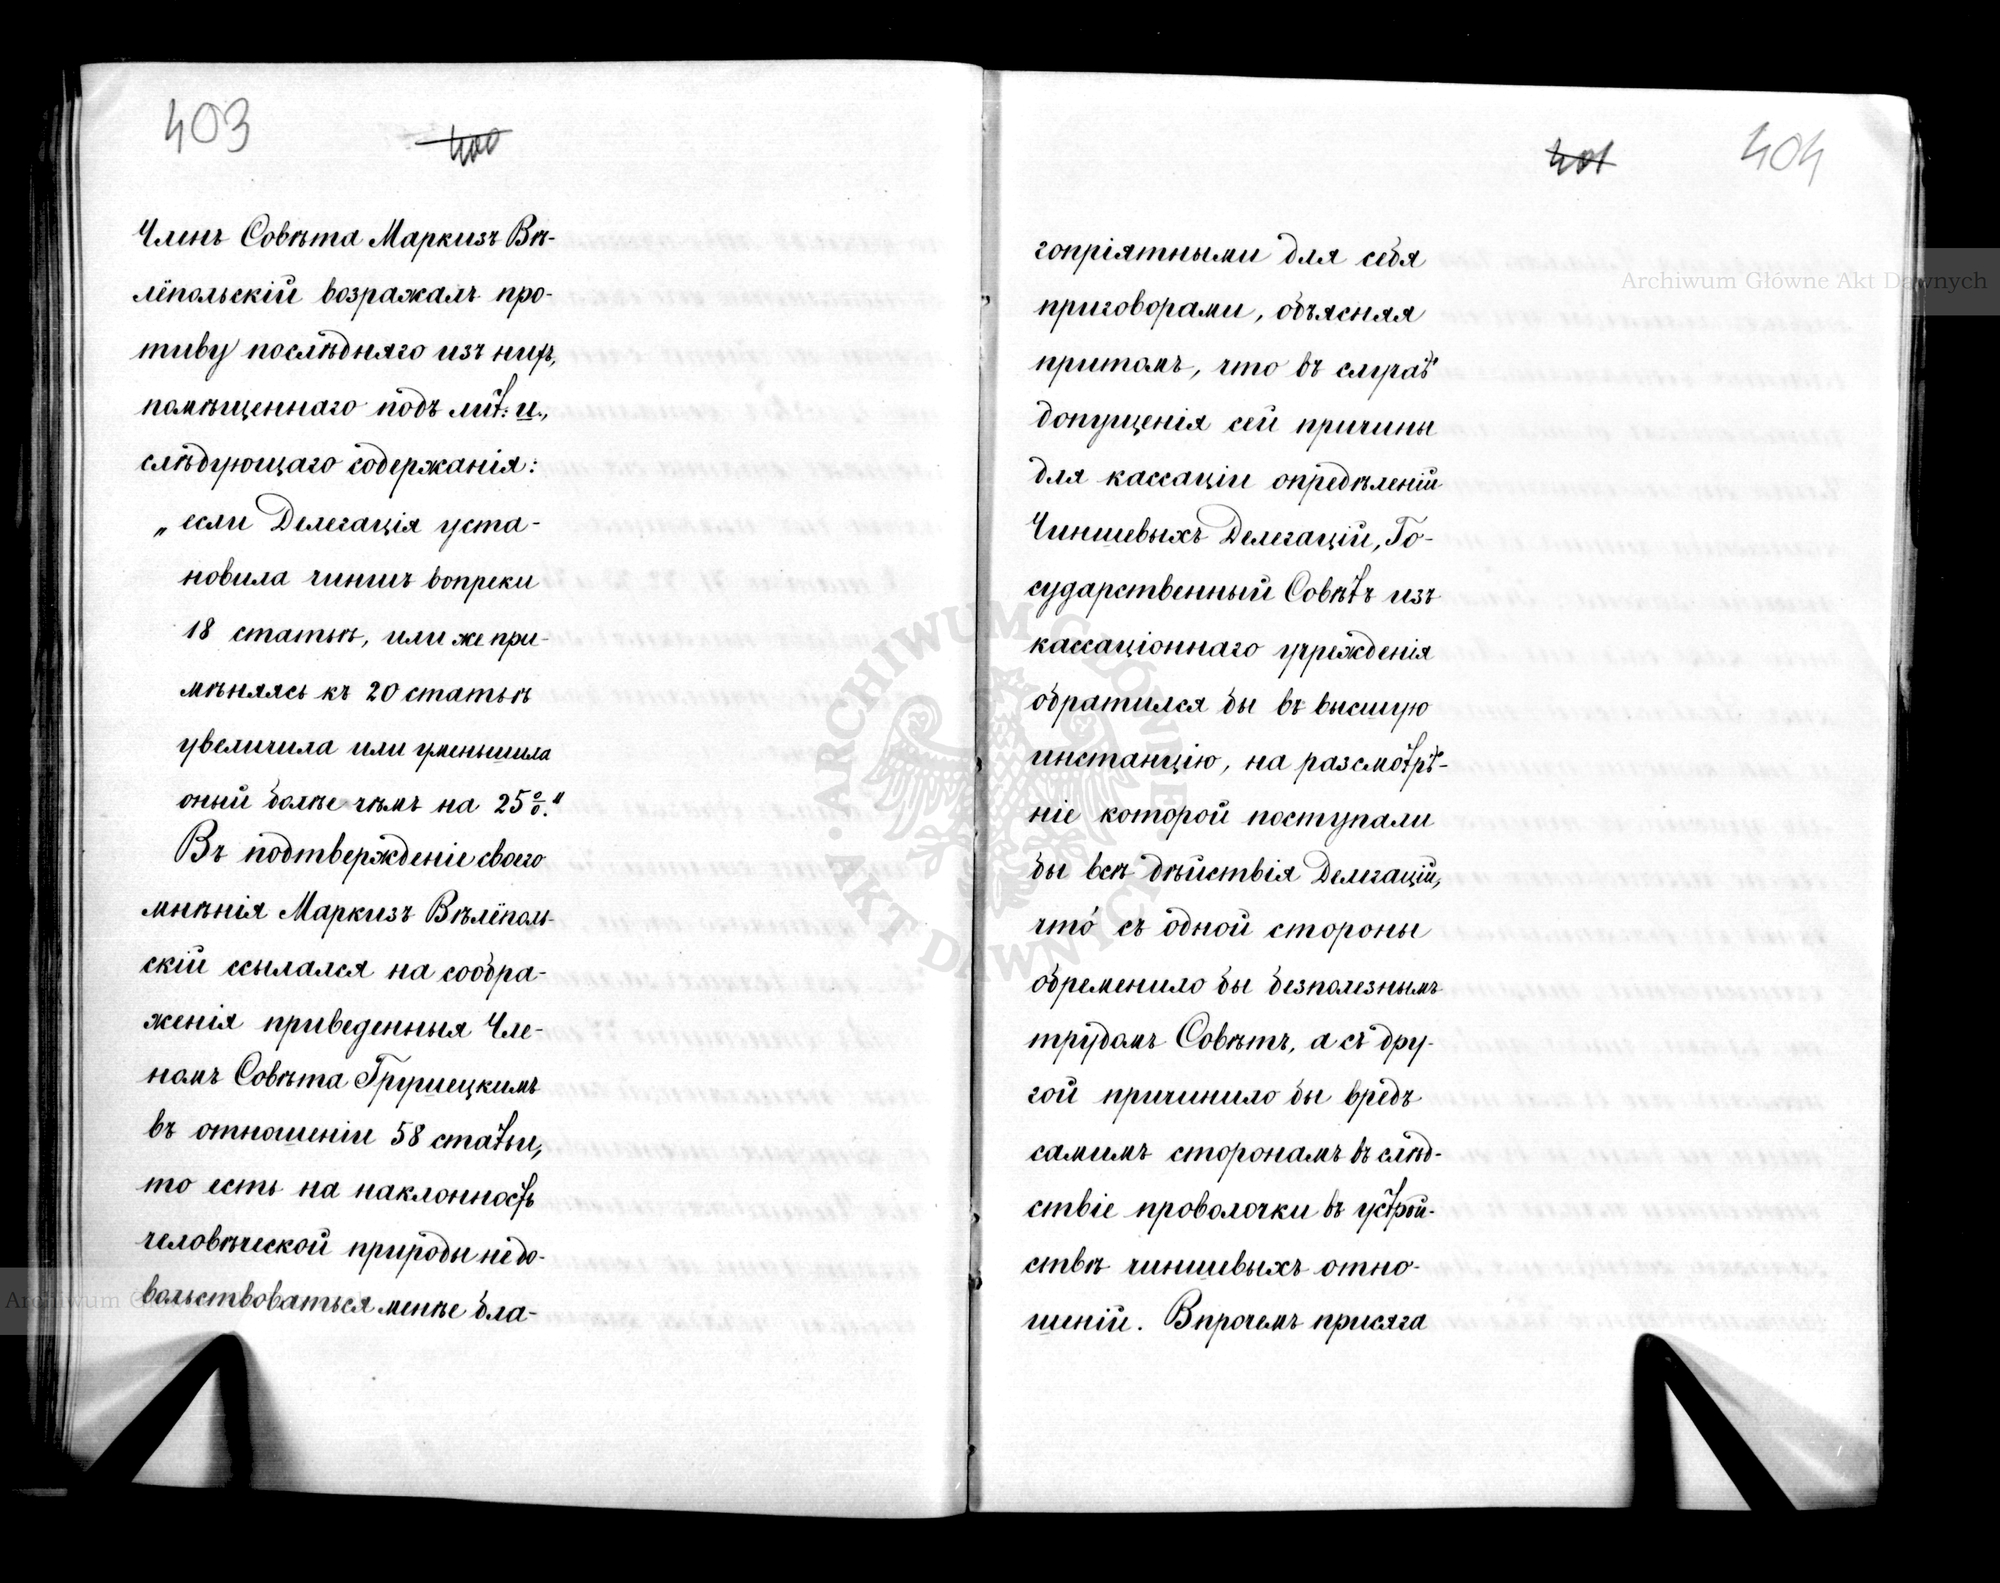 403
400
Членъ Совѣта Маркизъ Вѣ-
лёпольскій возражалъ про-
тиву послѣдняго изъ нихъ,
помѣщеннаго подъ лит: и.,
слѣдующаго содержанія:
„если Делегація уста-
новила чиншъ вопреки
18 статьѣ, или же при-
мѣняясь къ 20 статьѣ
увеличила или уменьшила
оный болѣе чѣмъ на 25%."
Въ подтвержденіе своего
мнѣнія Маркизъ Вѣлёполь-
скій ссылался на сообра-
женія приведенныя Чле-
номъ Совѣта Грушецкимъ
въ отношеніи 58 статьи,
то есть на наклонность
человѣческой природы недо-
вольствоваться менѣе бла-
401
404
гопріятными для себя
приговорами, объясняя
притомъ, что въ случаѣ
допущенія сей причины
для кассаціи опредѣленій
Чиншевыхъ Делегацій, Го-
сударственный Совѣтъ изъ
кассаціоннаго учрежденія
обратился бы въ высшую
инстанцію, на разсмотрѣ-
ніе которой поступали
бы всѣ дѣйствія Делегацій,
что́ съ одной стороны
обременило бы безполезнымъ
трудомъ Совѣтъ, а съ дру-
гой причинило бы вредъ
самимъ сторонамъ въ слѣд-
ствіе проволочки въ устрой-
ствѣ чиншевыхъ отно-
шеній. Впрочемъ присяга
Archiwum Główne Akt Dawnych
ARCHIWUM GŁÓWNE
AKT DAWNYCH
Archiwum G